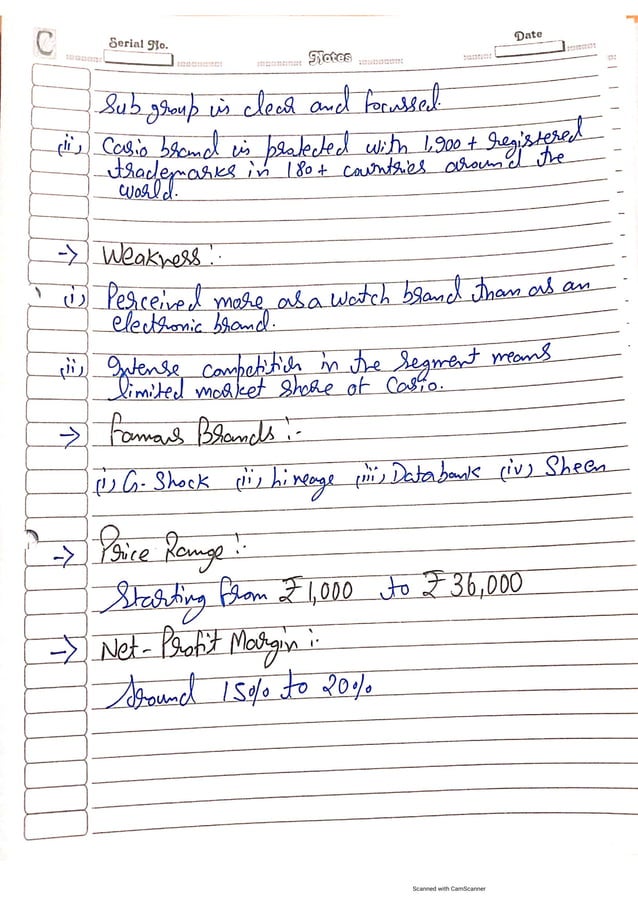 C
Serial No.
Notes
Date
Sub group is clear and focussed.
(ii) Casio brand is protected with 1,900 + registered
trademarks in 180+ countries around the
world.
→ Weakness :-
(i) Perceived more as a watch brand than as an
electronic brand.
(ii) Intense competition in the segment means
limited market share of Casio.
→ Famous Brands :-
(i) G-Shock (ii) Lineage (iii) Databank (iv) Sheen
→ Price Range :-
Starting from ₹1,000 to ₹36,000
→ Net-Profit Margin :-
Around 15% to 20%
Scanned with CamScanner